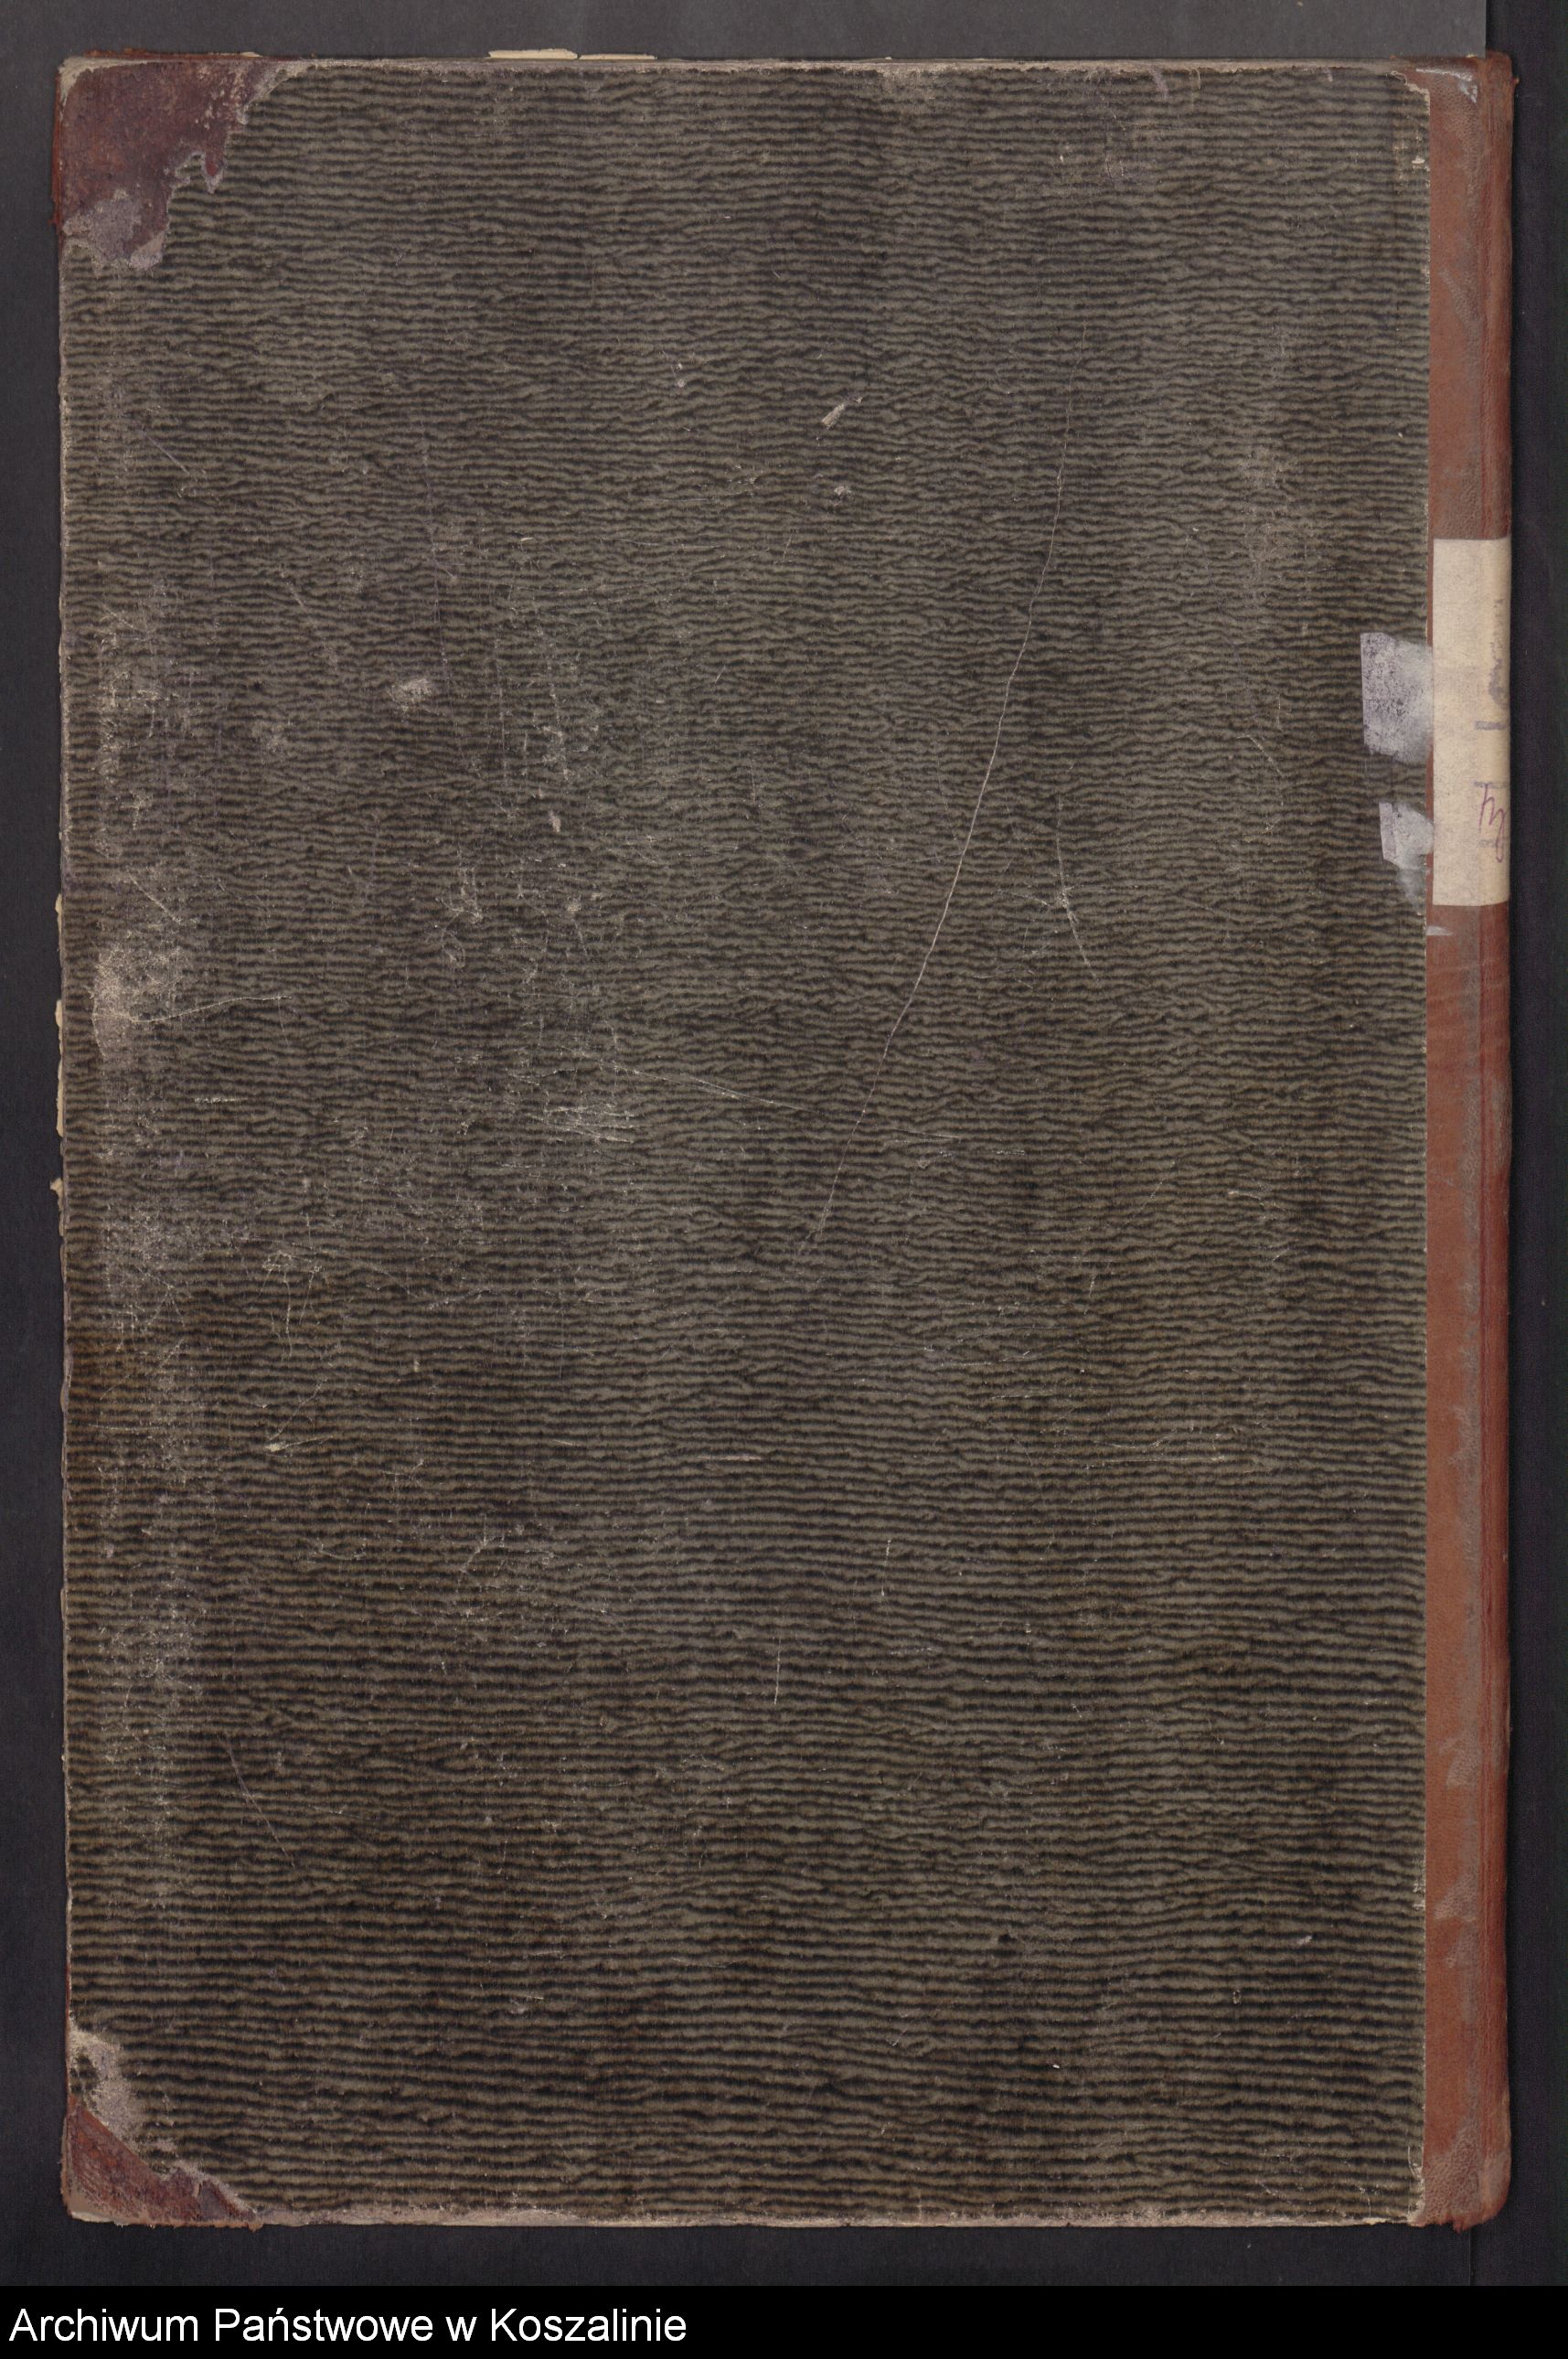 Archiwum Państwowe w Koszalinie